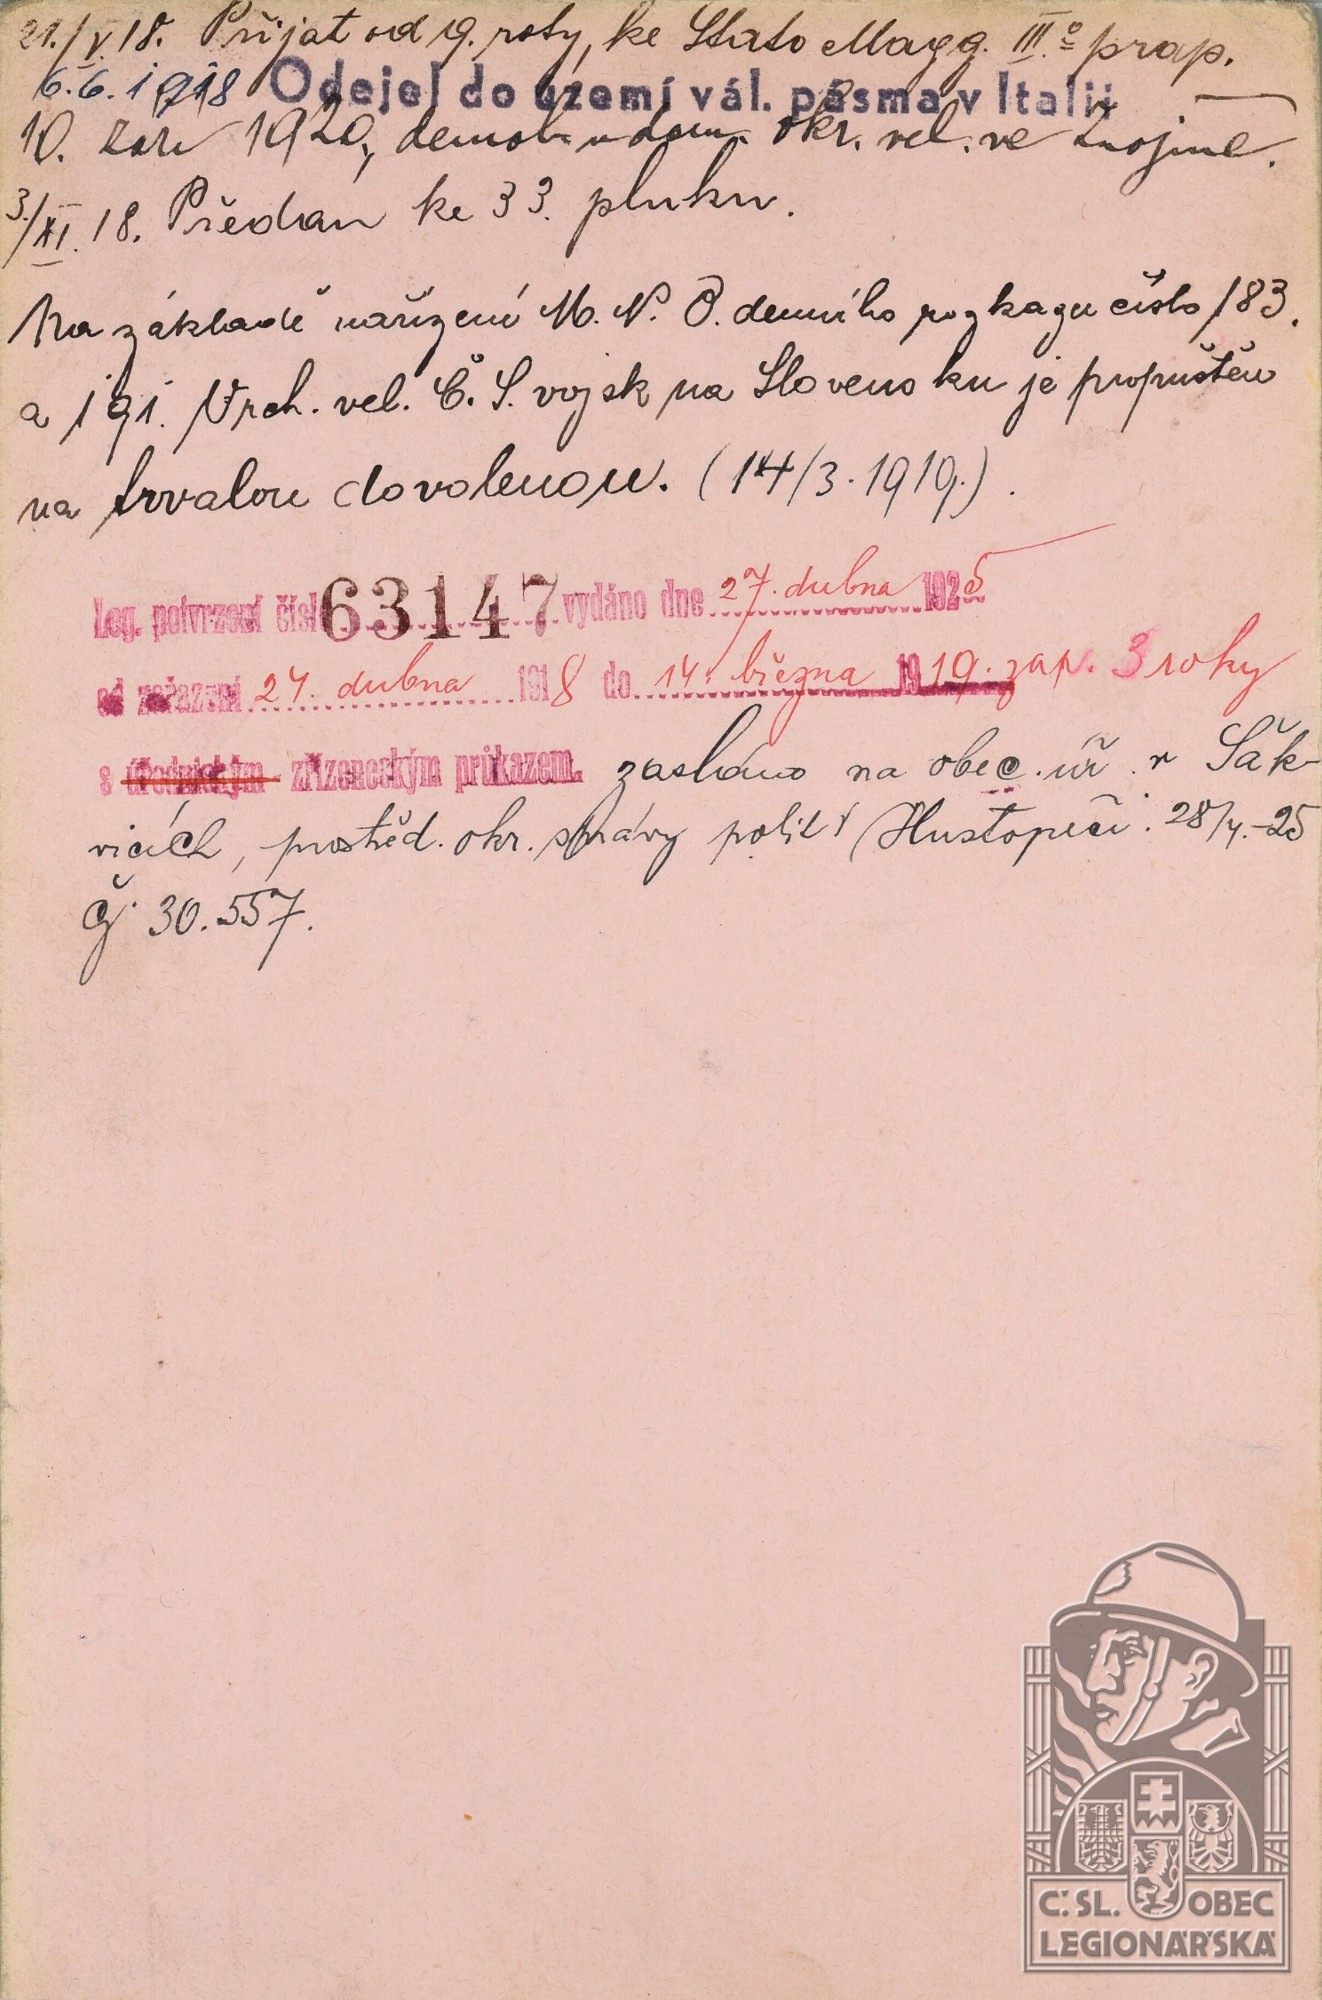 21./V.18. Přijat od 19. roty, ke Stato Magg. III.º prap.
6.6.1918 Odejel do území vál. pásma v Italii
10. září 1920, demob. u dom. okr. vel. ve Znojmě.
3./XI.18. Předán ke 33. pluku.
Na základě nařízení M. N. O. denního rozkazu číslo 183.
a 191. Vrch. vel. Č. S. vojsk na Slovensku je propuštěn
na trvalou dovolenou. (14/3. 1919.).
Leg. potvrzení čísl 63147 vydáno dne 27. dubna 1925
od zařazení 24. dubna 1918 do 14. března 1919. zap. 3 roky
s úřednickým zřízeneckým průkazem. zasláno na obec. úř. v Šak-
vicích, prostřed. okr. správy polit. v Hustopeči. 28/4.-25
Čj. 30.557.
Č.SL. OBEC
LEGIONÁŘSKÁ